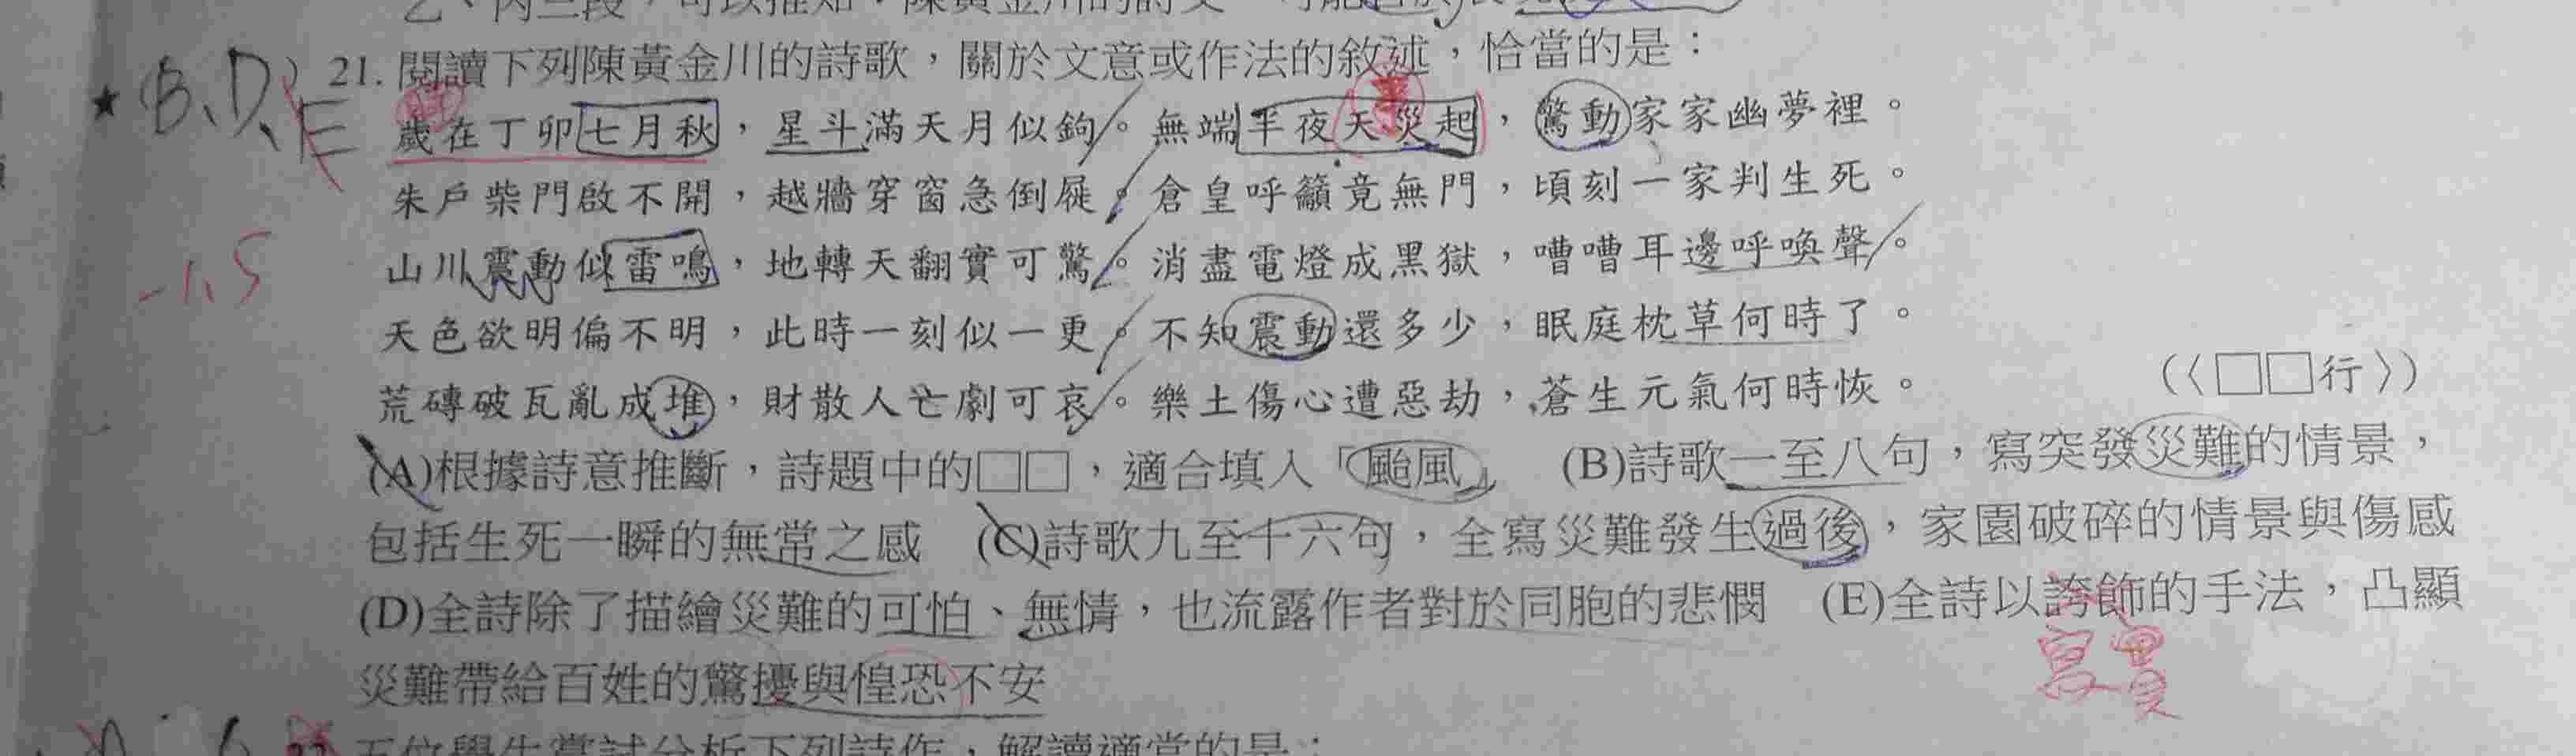 21. 閱讀下列陳黃金川的詩歌，關於文意或作法的敘述，恰當的是：
★(B、D、E
歲在丁卯七月秋，星斗滿天月似鉤。無端半夜天災起，驚動家家幽夢裡。
朱戶柴門啟不開，越牆穿窗急倒屣。倉皇呼籲竟無門，頃刻一家判生死。
-1.5
山川震動似雷鳴，地轉天翻實可驚。消盡電燈成黑獄，嘈嘈耳邊呼喚聲。
天色欲明偏不明，此時一刻似一更。不知震動還多少，眠庭枕草何時了。
荒磚破瓦亂成堆，財散人亡劇可哀。樂土傷心遭惡劫，蒼生元氣何時恢。
（〈□□行〉）
(A)根據詩意推斷，詩題中的□□，適合填入「颱風」 (B)詩歌一至八句，寫突發災難的情景，
包括生死一瞬的無常之感 (C)詩歌九至十六句，全寫災難發生過後，家園破碎的情景與傷感
(D)全詩除了描繪災難的可怕、無情，也流露作者對於同胞的悲憫 (E)全詩以誇飾的手法，凸顯
寫實
災難帶給百姓的驚擾與惶恐不安